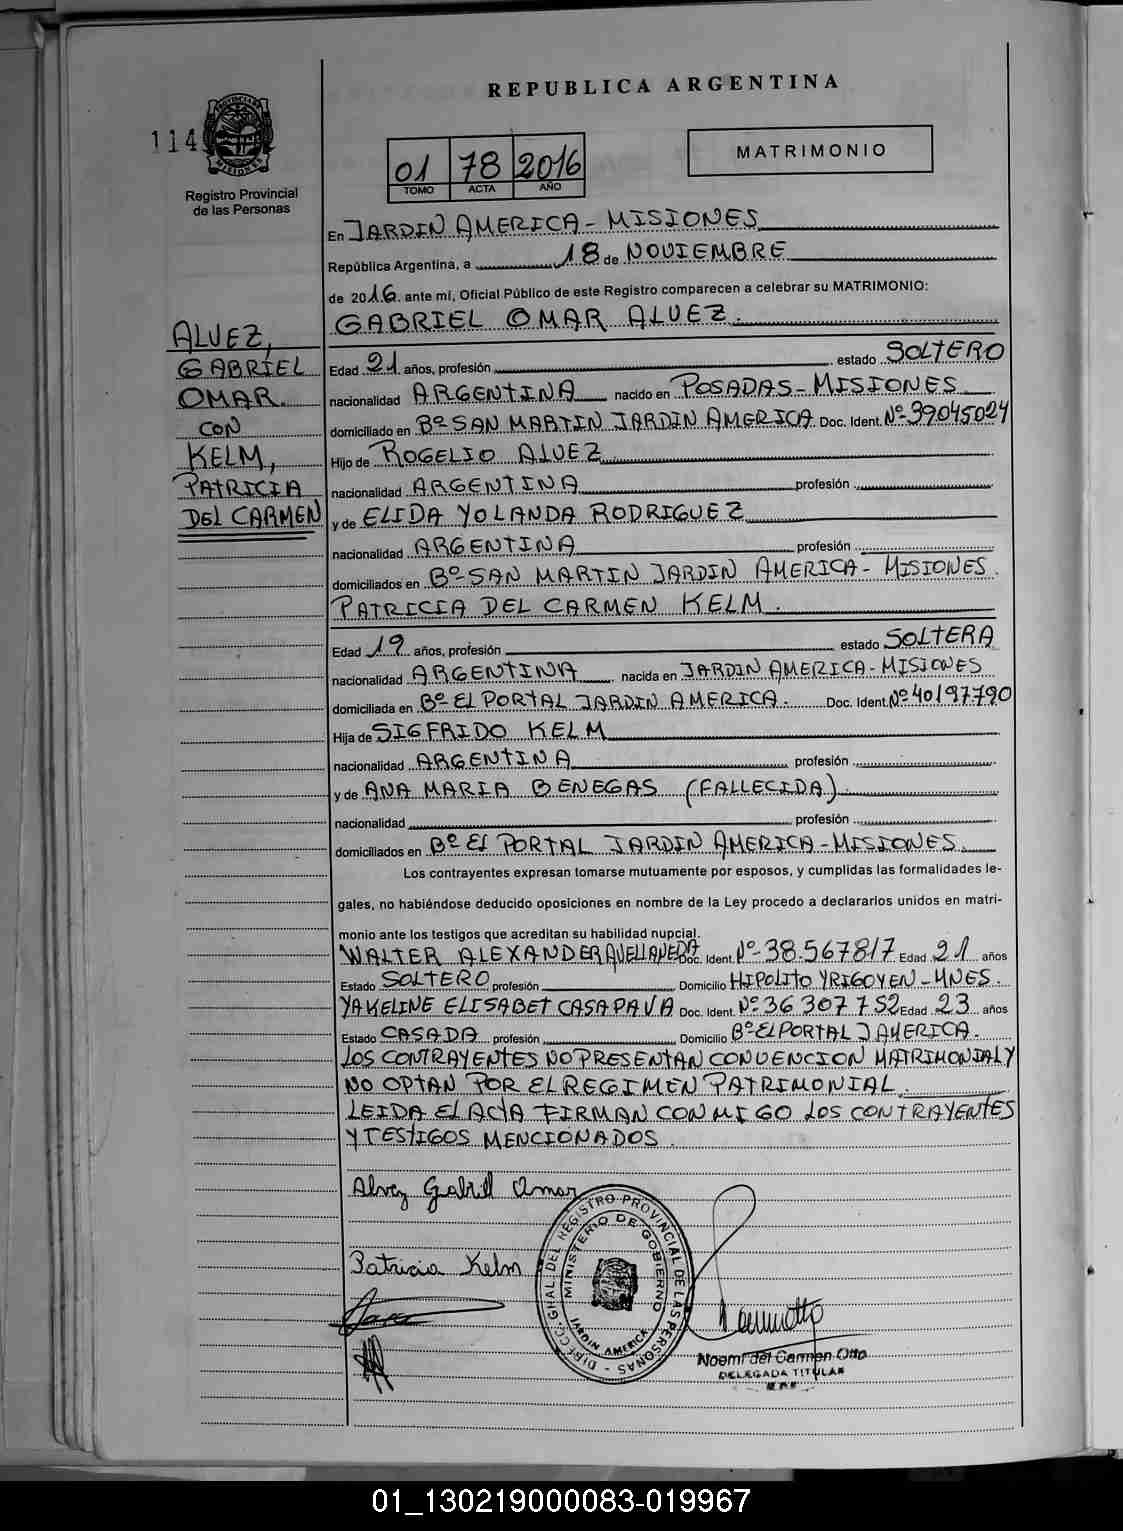 REPUBLICA ARGENTINA
114
PROVINCIA DE MISIONES
Registro Provincial
de las Personas
01 78 2016
TOMO ACTA AÑO
MATRIMONIO
En JARDIN AMERICA - MISIONES
República Argentina, a 18 de NOVIEMBRE
de 2016 ante mi, Oficial Público de este Registro comparecen a celebrar su MATRIMONIO:
ALVEZ,
GABRIEL
OMAR.
CON
KELM,
PATRICIA
DEL CARMEN
GABRIEL OMAR ALVEZ.
Edad 21 años, profesión estado SOLTERO
nacionalidad ARGENTINA nacido en POSADAS - MISIONES
domiciliado en Bº SAN MARTIN JARDIN AMERICA Doc. Ident. Nº 39045024
Hijo de ROGELIO ALVEZ
nacionalidad ARGENTINA profesión
y de ELIDA YOLANDA RODRIGUEZ
nacionalidad ARGENTINA profesión
domiciliados en Bº SAN MARTIN JARDIN AMERICA - MISIONES.
PATRICIA DEL CARMEN KELM.
Edad 19 años, profesión estado SOLTERA
nacionalidad ARGENTINA nacida en JARDIN AMERICA - MISIONES
domiciliada en Bº EL PORTAL JARDIN AMERICA. Doc. Ident. Nº 40197790
Hija de SIGFRIDO KELM
nacionalidad ARGENTINA profesión
y de ANA MARIA BENEGAS (FALLECIDA)
nacionalidad profesión
domiciliados en Bº El PORTAL JARDIN AMERICA - MISIONES.
Los contrayentes expresan tomarse mutuamente por esposos, y cumplidas las formalidades le-
gales, no habiéndose deducido oposiciones en nombre de la Ley procedo a declararlos unidos en matri-
monio ante los testigos que acreditan su habilidad nupcial.
WALTER ALEXANDER AVELLANEDA Doc. Ident. Nº 38.567817 Edad 21 años
Estado SOLTERO profesión Domicilio HIPOLITO YRIGOYEN - MNES.
YAKELINE ELISABET CASAPAVA Doc. Ident. Nº 36 307 752 Edad 23 años
Estado CASADA profesión Domicilio Bº EL PORTAL J AMERICA.
LOS CONTRAYENTES NO PRESENTAN CONVENCION MATRIMONIAL Y
NO OPTAN POR EL REGIMEN PATRIMONIAL.
LEIDA EL ACTA FIRMAN CONMIGO LOS CONTRAYENTES
Y TESTIGOS MENCIONADOS.
Alvez Gabriel Omar
Patricia Kelm
DIRECC. GRAL. DEL REGISTRO PROVINCIAL DE LAS PERSONAS
MINISTERIO DE GOBIERNO
JARDIN AMERICA
Noemi del Carmen Otto
DELEGADA TITULAR
01_130219000083-019967